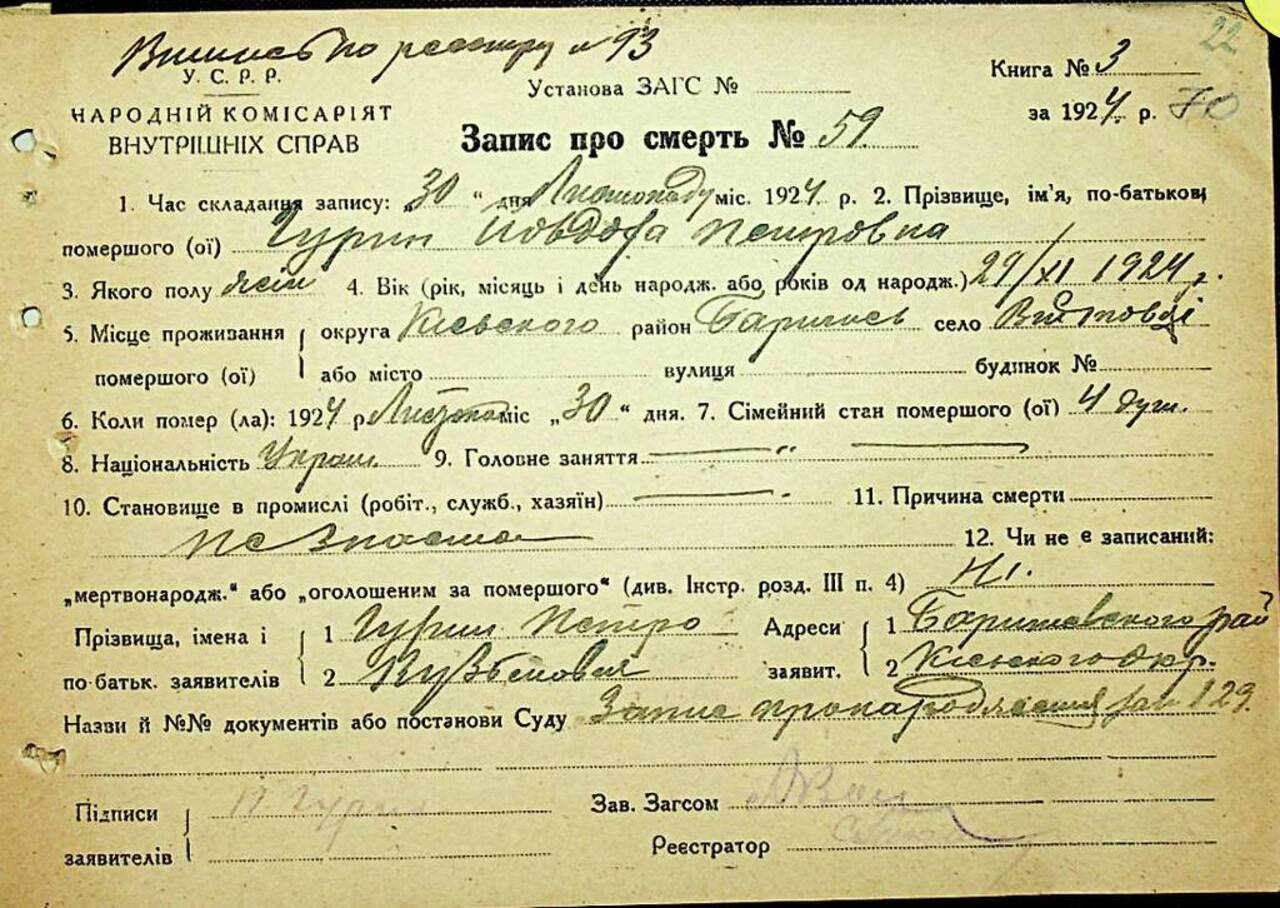 22
Выпись по реестру № 93
У. С. Р. Р.
НАРОДНІЙ КОМІСАРІЯТ
ВНУТРІШНІХ СПРАВ
Установа ЗАГС №
Книга № 3
за 1924 р. 70
Запис про смерть № 59.
1. Час складання запису: „30“ дня Листопаду міс. 1924 р. 2. Прізвище, ім'я, по-батькові
помершого (ої) Гурин Йовдоха Петровна
3. Якого полу жесій 4. Вік (рік, місяць і день народж. або років од народж.) 29/XI 1924 р.
5. Місце проживання округа Кієвского район Баришсь село
помершого (ої) або місто вулиця будинок №
6. Коли помер (ла): 1924 р. міс „30“ дня. 7. Сімейний стан помершого (ої) 4 душ.
8. Національність Украін. 9. Головне заняття — " —
10. Становище в промислі (робіт., служб., хазяїн) — 11. Причина смерти
не знаєма 12. Чи не є записаний:
„мертвонародж.“ або „оголошеним за помершого“ (див. Інстр. розд. III п. 4) Ні.
Прізвища, імена і 1 Гурин Петро Адреси 1 Баришевского рай
по-батьк. заявителів 2 Кузьмовия заявит. 2 Кієвского окр.
Назви й №№ документів або постанови Суду Запис про народження за № 129.
Підписи П. Гурин Зав. Загсом
заявителів Реєстратор